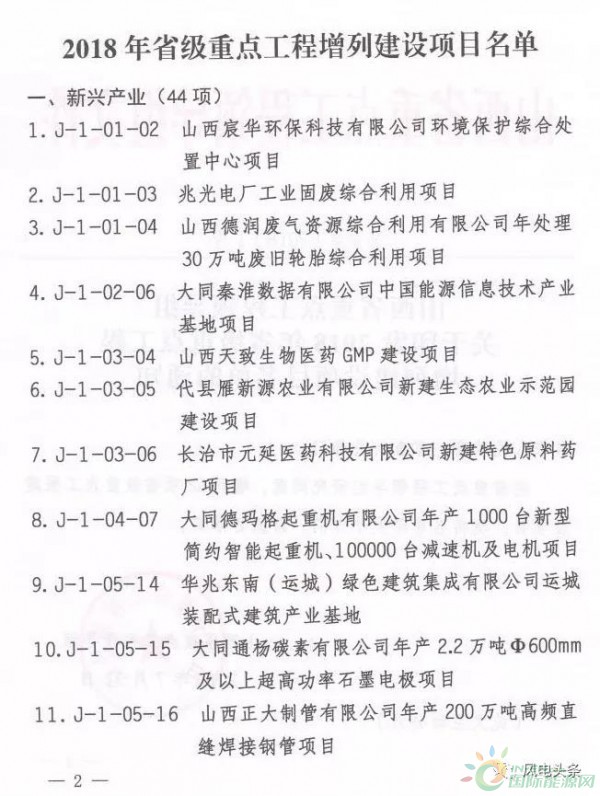 2018年省级重点工程增列建设项目名单
一、新兴产业（44项）
1. J-1-01-02 山西宸华环保科技有限公司环境保护综合处
置中心项目
2. J-1-01-03 兆光电厂工业固废综合利用项目
3. J-1-01-04 山西德润废气资源综合利用有限公司年处理
30万吨废旧轮胎综合利用项目
4. J-1-02-06 大同秦淮数据有限公司中国能源信息技术产业
基地项目
5. J-1-03-04 山西天致生物医药GMP建设项目
6. J-1-03-05 代县雁新源农业有限公司新建生态农业示范园
建设项目
7. J-1-03-06 长治市元延医药科技有限公司新建特色原料药
厂项目
8. J-1-04-07 大同德玛格起重机有限公司年产1000台新型
简约智能起重机、100000台减速机及电机项目
9. J-1-05-14 华兆东南（运城）绿色建筑集成有限公司运城
装配式建筑产业基地
10. J-1-05-15 大同通杨碳素有限公司年产2.2万吨Φ600mm
及以上超高功率石墨电极项目
11. J-1-05-16 山西正大制管有限公司年产200万吨高频直
缝焊接钢管项目
— 2 —
风电头条
国际能源网